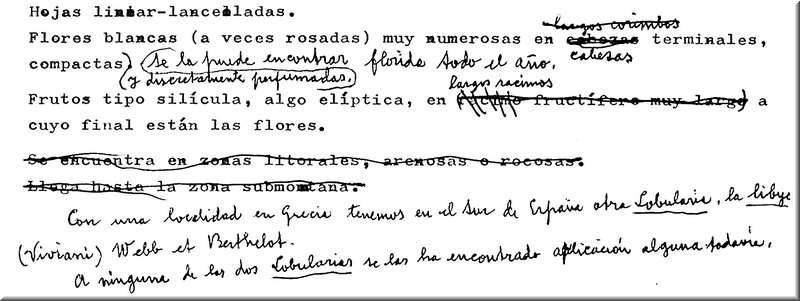 Hojas linear-lanceoladas.
largos corimbos
Flores blancas (a veces rosadas) muy numerosas en cabezas terminales,
cabezas
compactas) Se la puede encontrar florida todo el año.
(y discretamente perfumadas.)
largos racimos
Frutos tipo silícula, algo elíptica, en racimo fructífero muy largo a
cuyo final están las flores.
Se encuentra en zonas litorales, arenosas o rocosas.
Llega hasta la zona submontana.
Con una localidad en Grecia tenemos en el Sur de España otra Lobularia, la libyca
(Viviani) Webb et Berthelot.
A ninguna de las dos Lobularias se las ha encontrado aplicación alguna todavía.